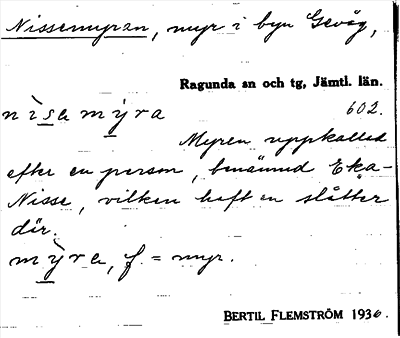 Nissemyran, myr i byn Gevåg,
Ragunda sn och tg, Jämtl. län.
nìsamy̆̀ra 602.
Myren uppkallad
efter en person, benämnd Eka-
Nisse, vilken haft en slåtter
där.
my̆̀ra, f. = myr.
BERTIL FLEMSTRÖM 1936.